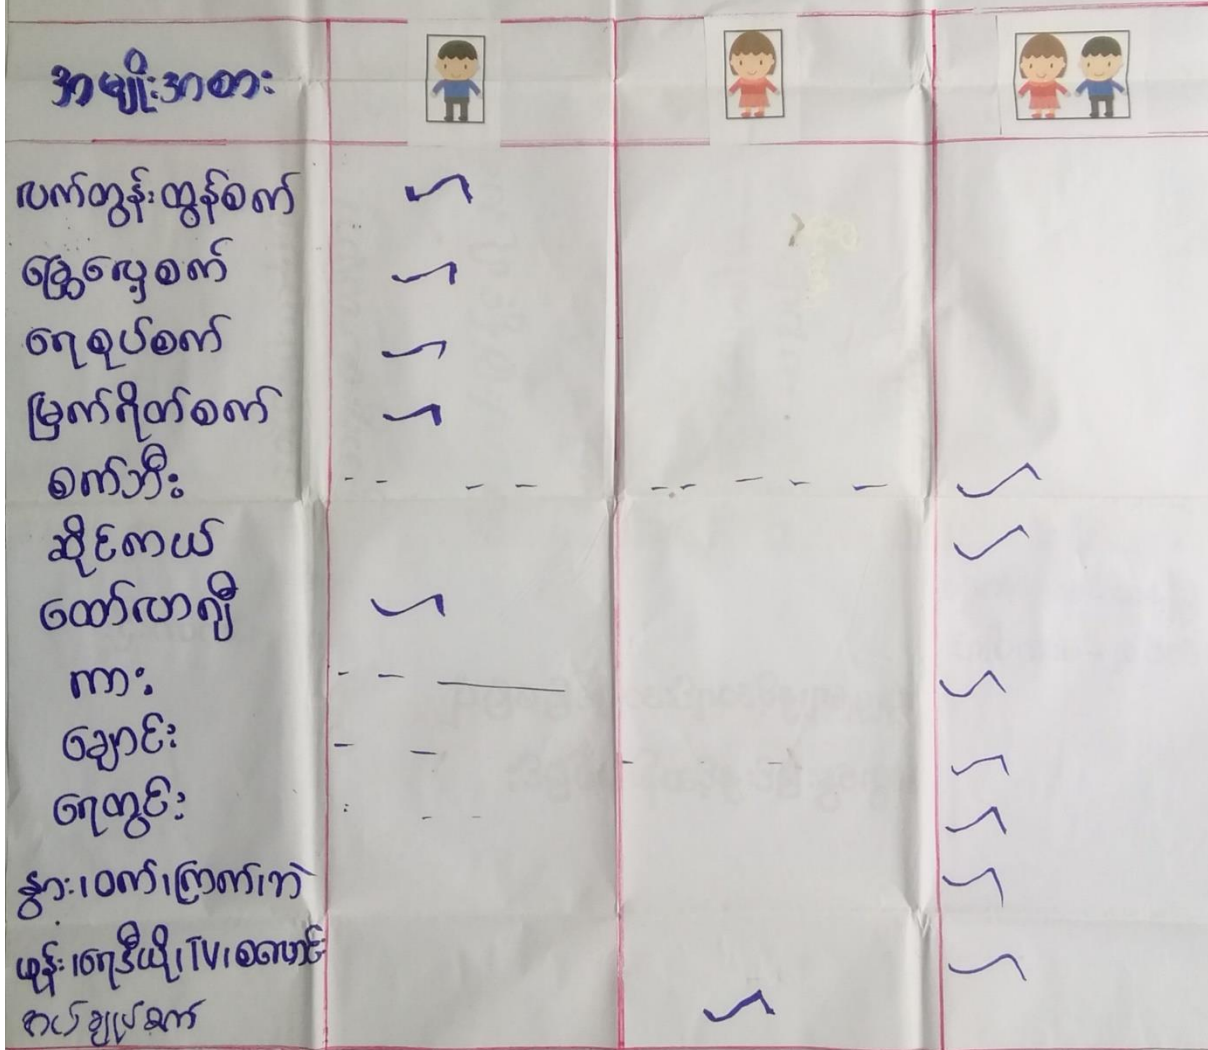 အမျိုးအစား
လက်တွန်းထွန်စက်
ခြွေလှေ့စက်
ရေစုပ်စက်
မြက်ရိတ်စက်
စက်ဘီး
ဆိုင်ကယ်
ထော်လာဂျီ
ကား
ချောင်း
ရေတွင်း
နွား၊ဝက်၊ကြက်၊ဘဲ
ဖုန်း၊ရေဒီယို၊TV၊စလောင်း
စက်ချုပ်စက်